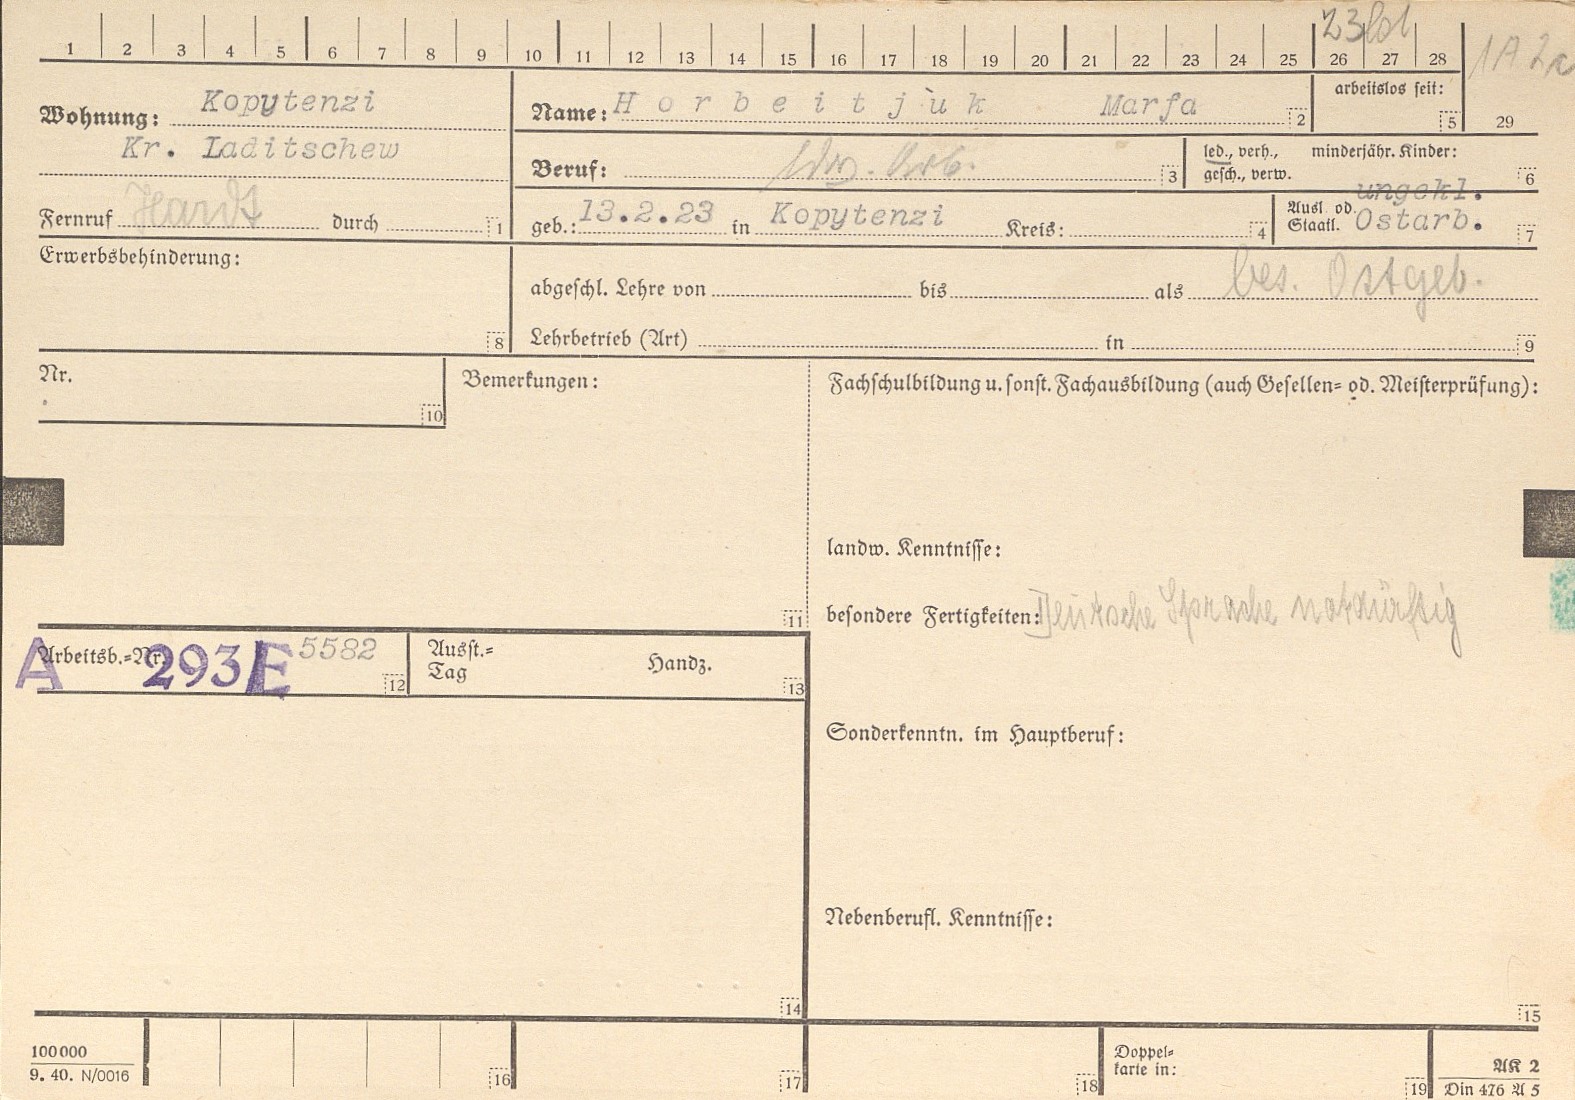 1 2 3 4 5 6 7 8 9 10 11 12 13 14 15 16 17 18 19 20 21 22 23 24 25 26 27 28 29
23 1A
Wohnung: Kopytenzi
Kr. Laditschew
Fernruf Hardt durch 1
Name: Horbeitjuk Marfa 2
arbeitslos seit: 5
Beruf: ldw. Arb. 3
led., verh., minderjähr. Kinder:
gesch., verw. 6
geb.: 13.2.23 in Kopytenzi Kreis: 4
ungekl.
Ausl. od.
Staatl. Ostarb. 7
Erwerbsbehinderung: 8
abgeschl. Lehre von bis als bes. Ostgeb.
Lehrbetrieb (Art) in 9
Nr. 10
Bemerkungen: 11
Fachschulbildung u. sonst. Fachausbildung (auch Gesellen- od. Meisterprüfung):
landw. Kenntnisse:
besondere Fertigkeiten: Deutsche Sprache notdürftig
Arbeitsb.-Nr. A 293E 5582 12
Ausst.-
Tag Handz. 13
Sonderkenntn. im Hauptberuf:
Nebenberufl. Kenntnisse:
14 15
100000
9. 40. N/0016
16 17 18
Doppel-
karte in: 19
AK 2
Din 476 A 5